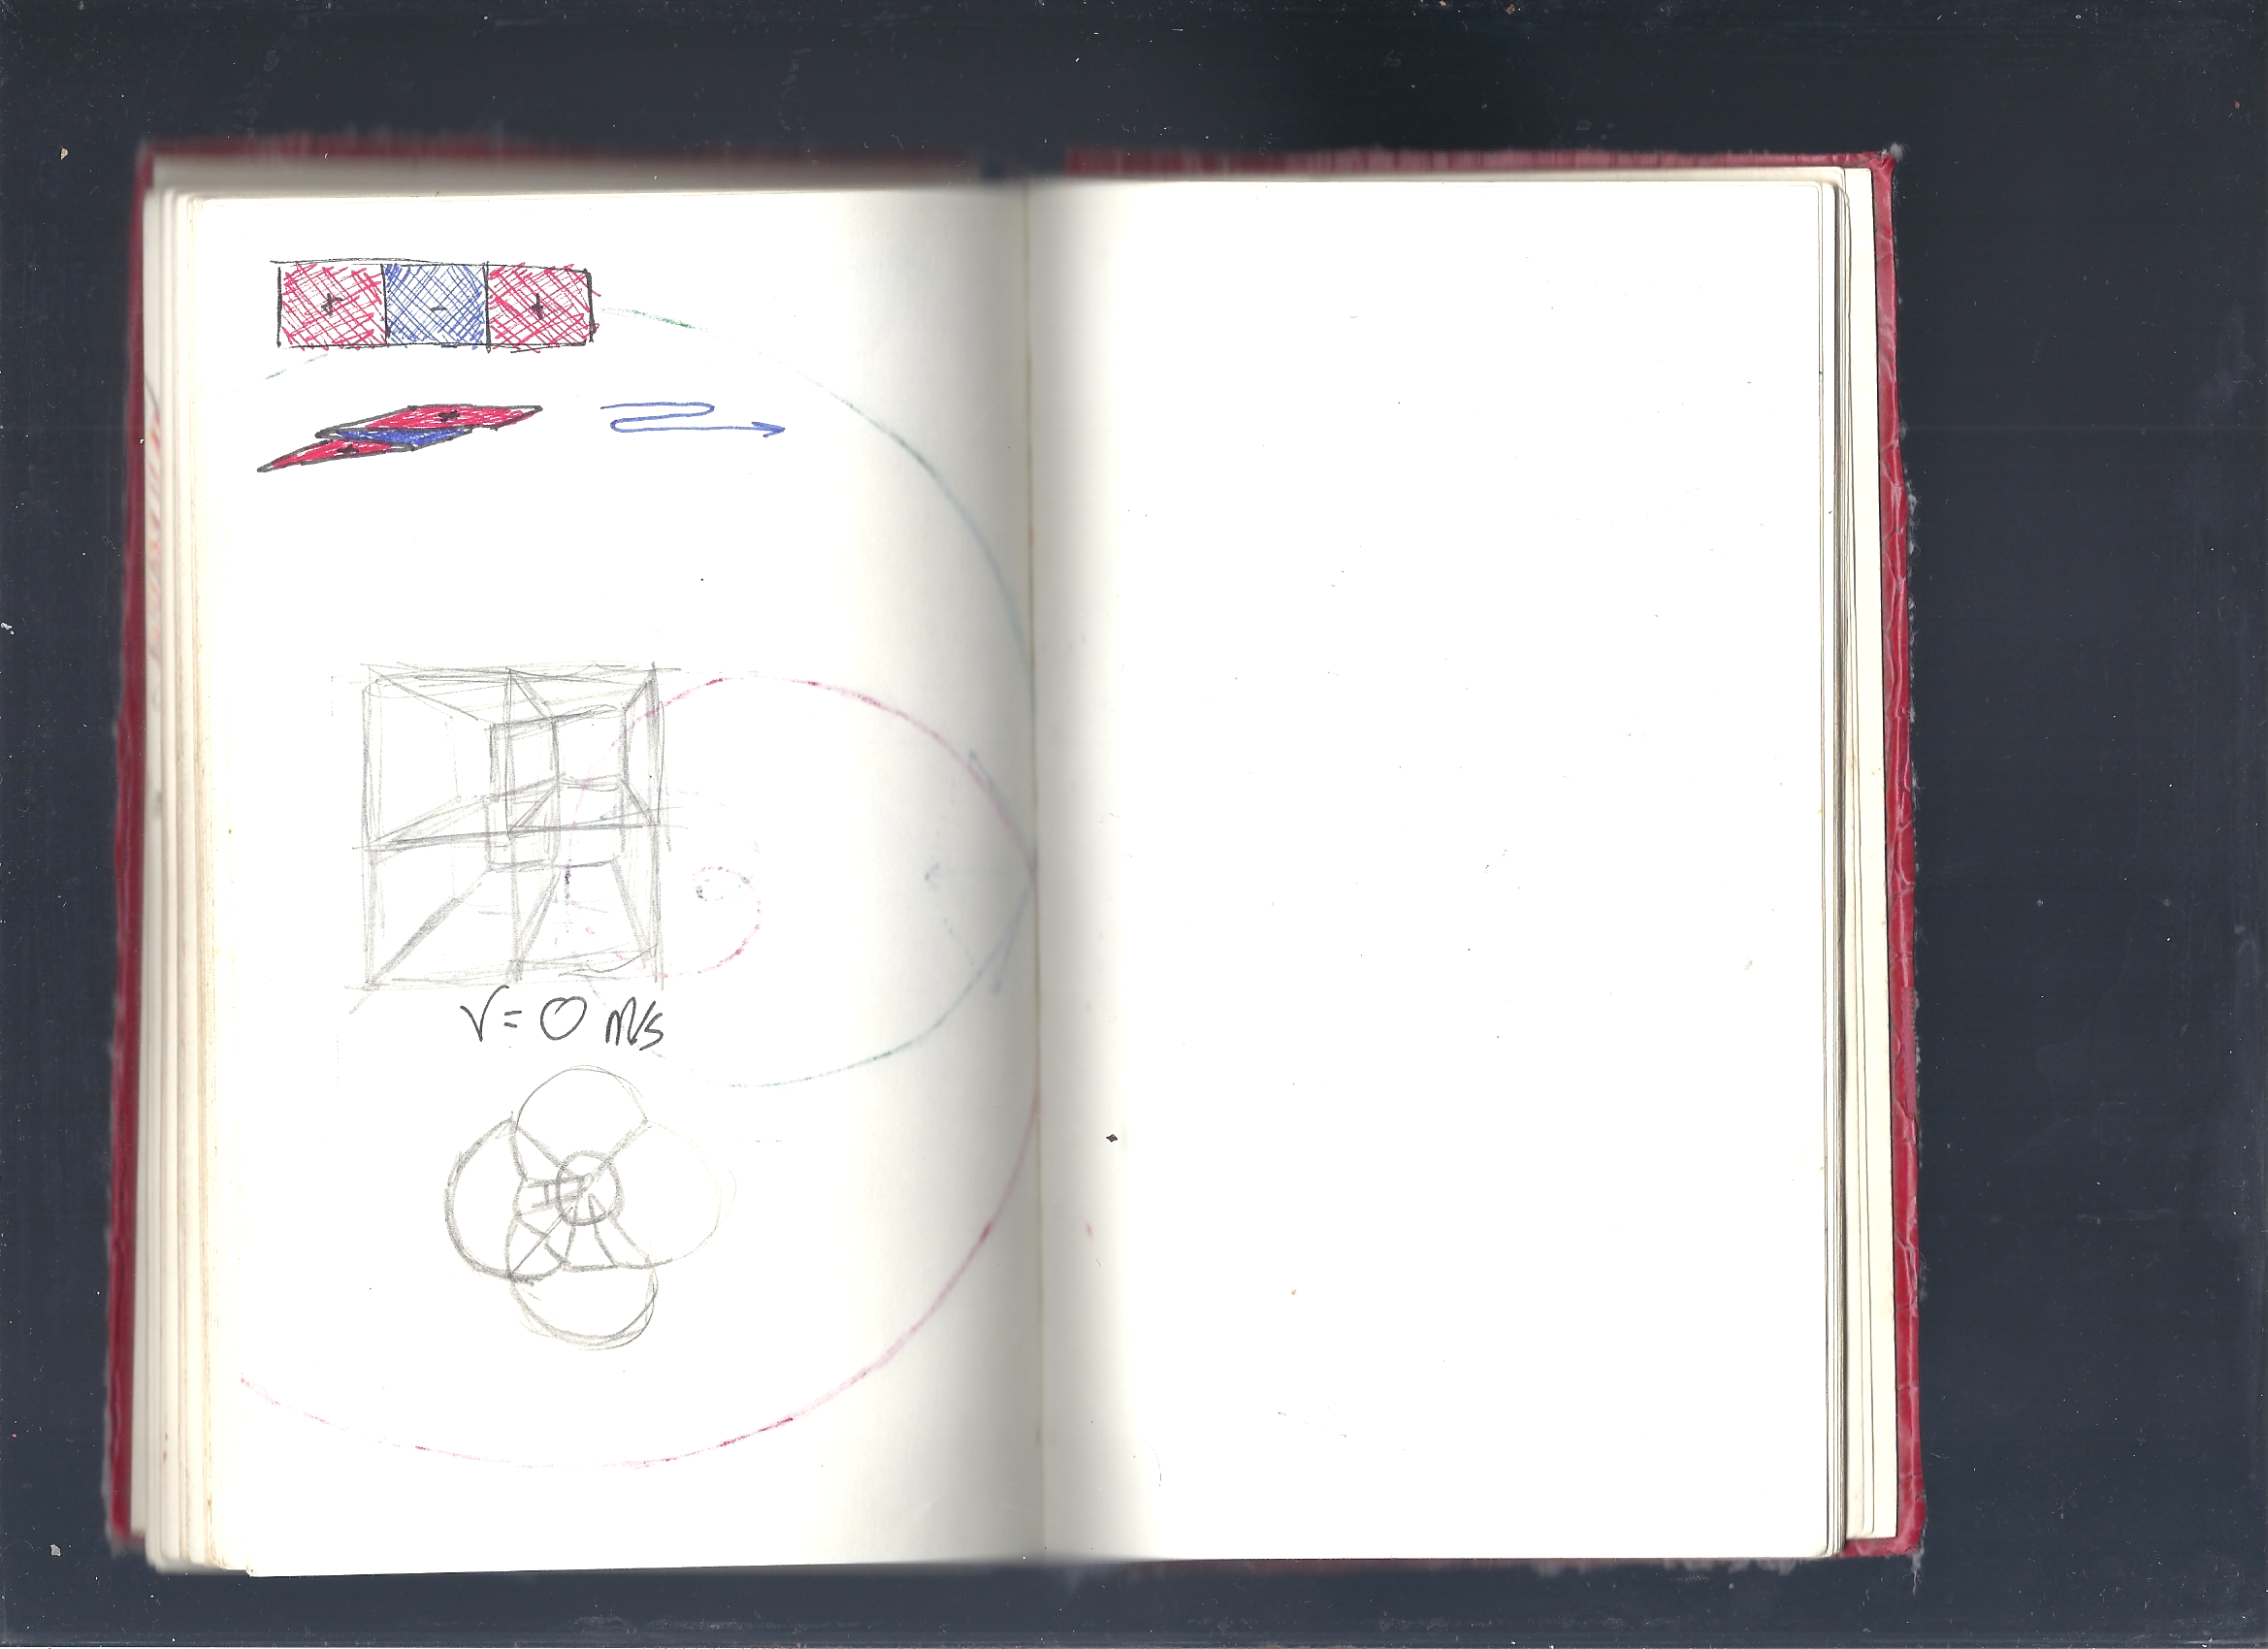 + - +
+
+
V = 0 m/s